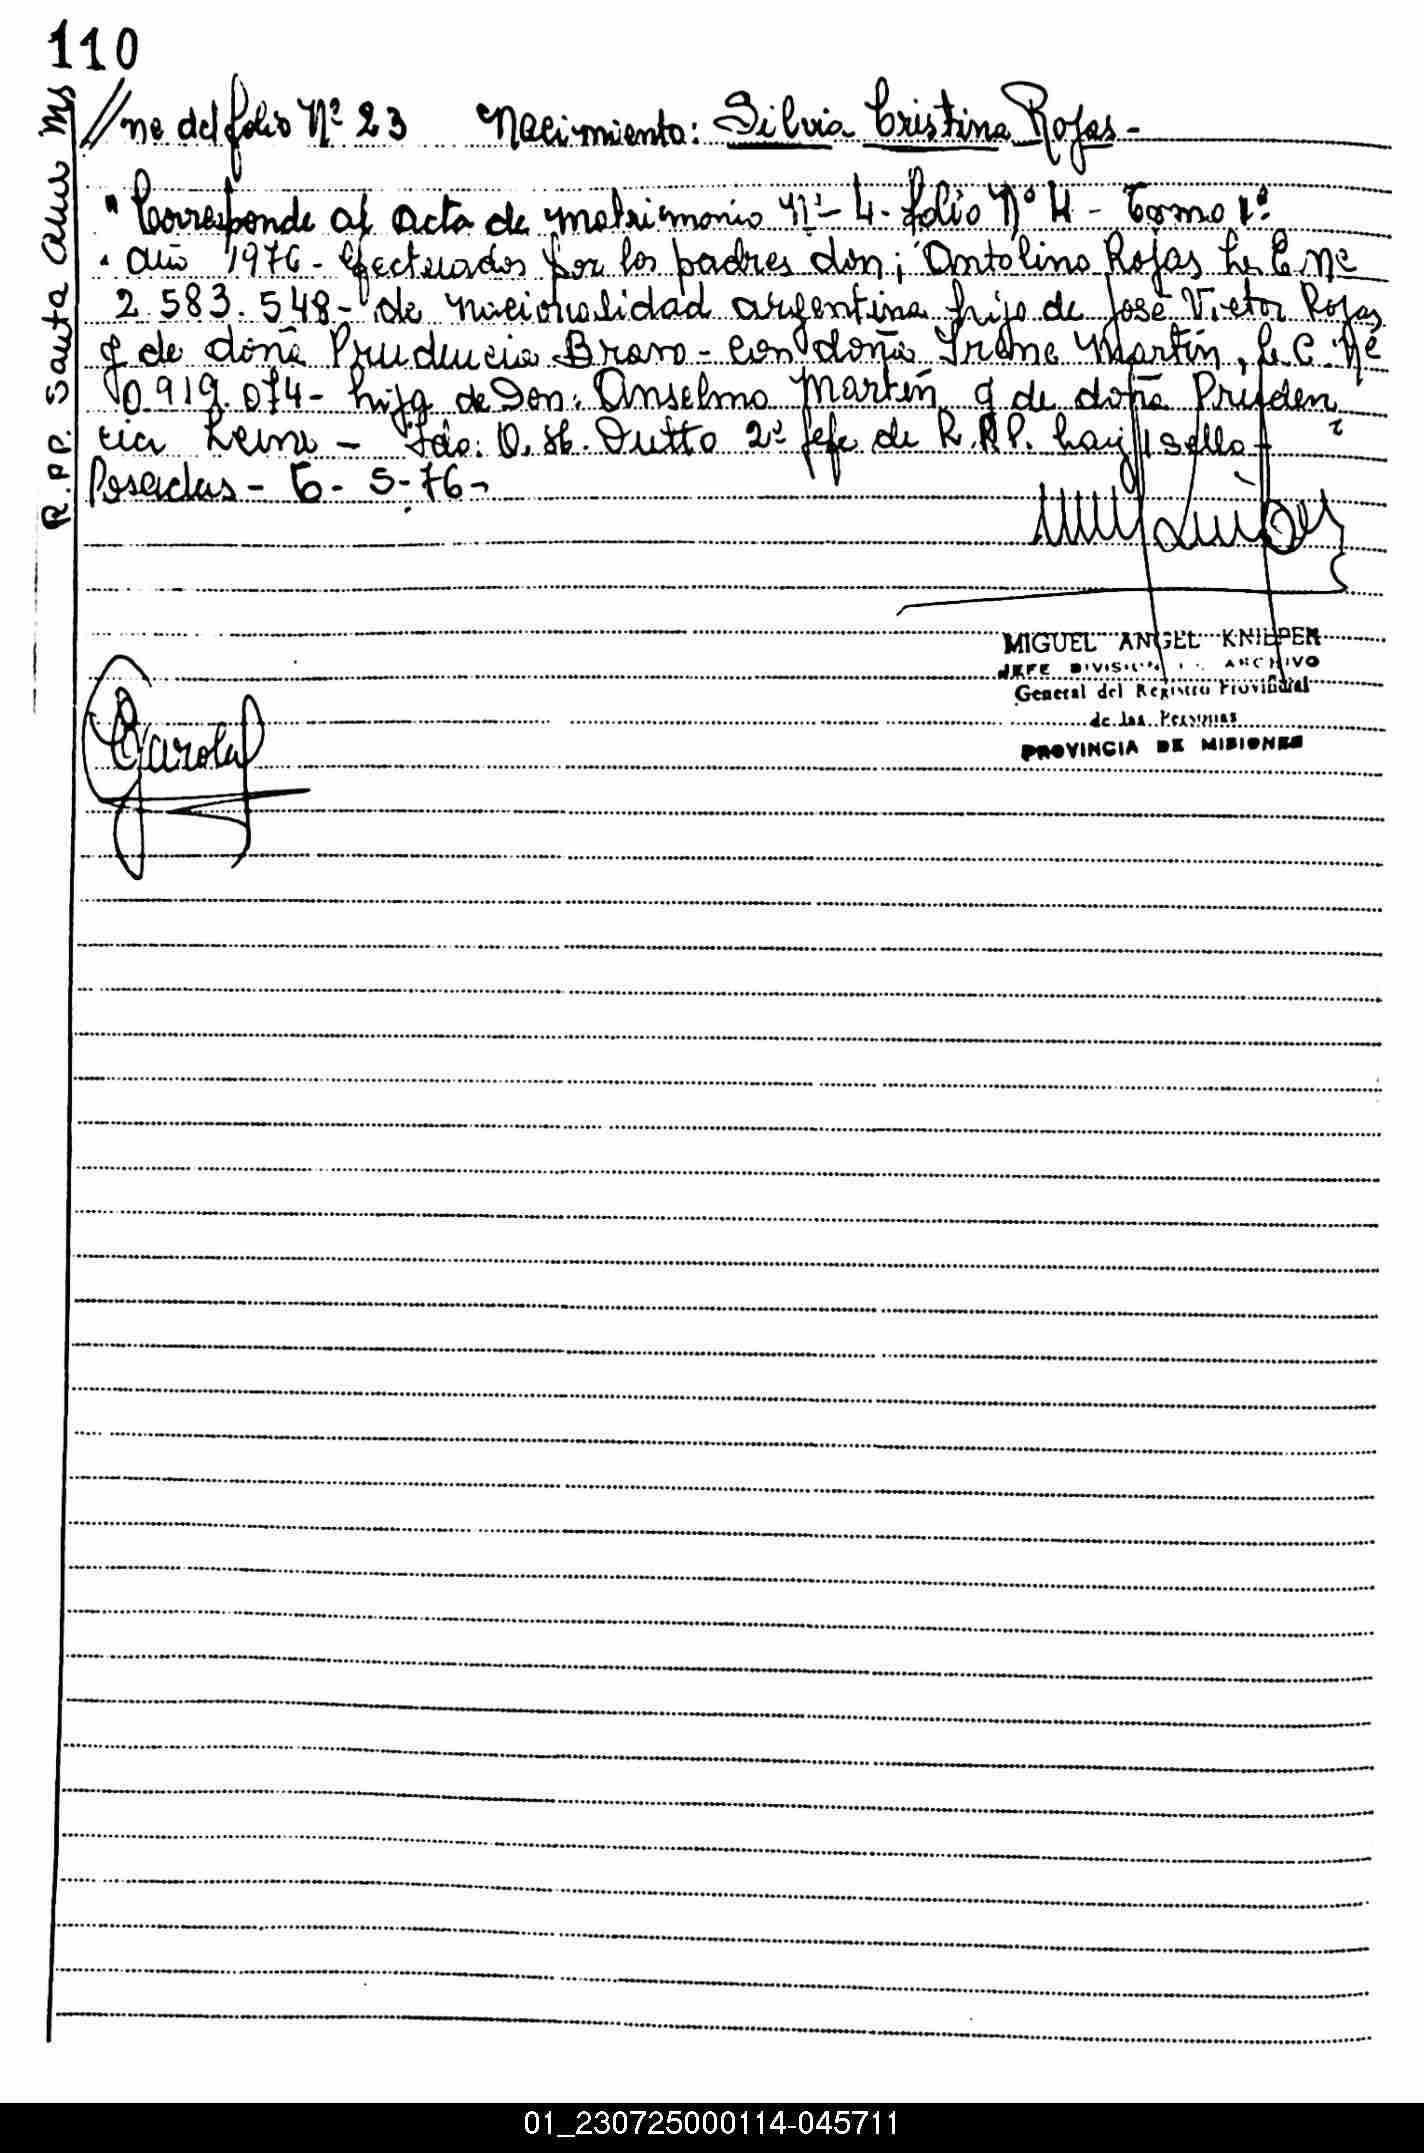 110
R.PP. Santa Ana Ms
//ne del folio Nº 23 Nacimiento: Silvia Cristina Rojas -
"Corresponde al acta de matrimonio Nº 4 - folio Nº 4 - Tomo 1º
año 1976 - efectuados por los padres don; Antolino Rojas L. E. Nº
2.583.548 - de nacionalidad argentina hijo de José Victor Rojas
y de doña Prudencia Bravo - con doña Irene Martín, L. C. Nº
0.919.074 - hija de Don: Anselmo Martín y de doña Pruden
cia - Fdo: O. H. Dutto 2º Jefe de R.P.P. hay 1 sello -
Posadas - 6 - 5 - 76 -
MIGUEL ANGEL KNIEPER
JEFE DIVISION ARCHIVO
General del Registro Provincial
de las Personas
PROVINCIA DE MISIONES
01_230725000114-045711